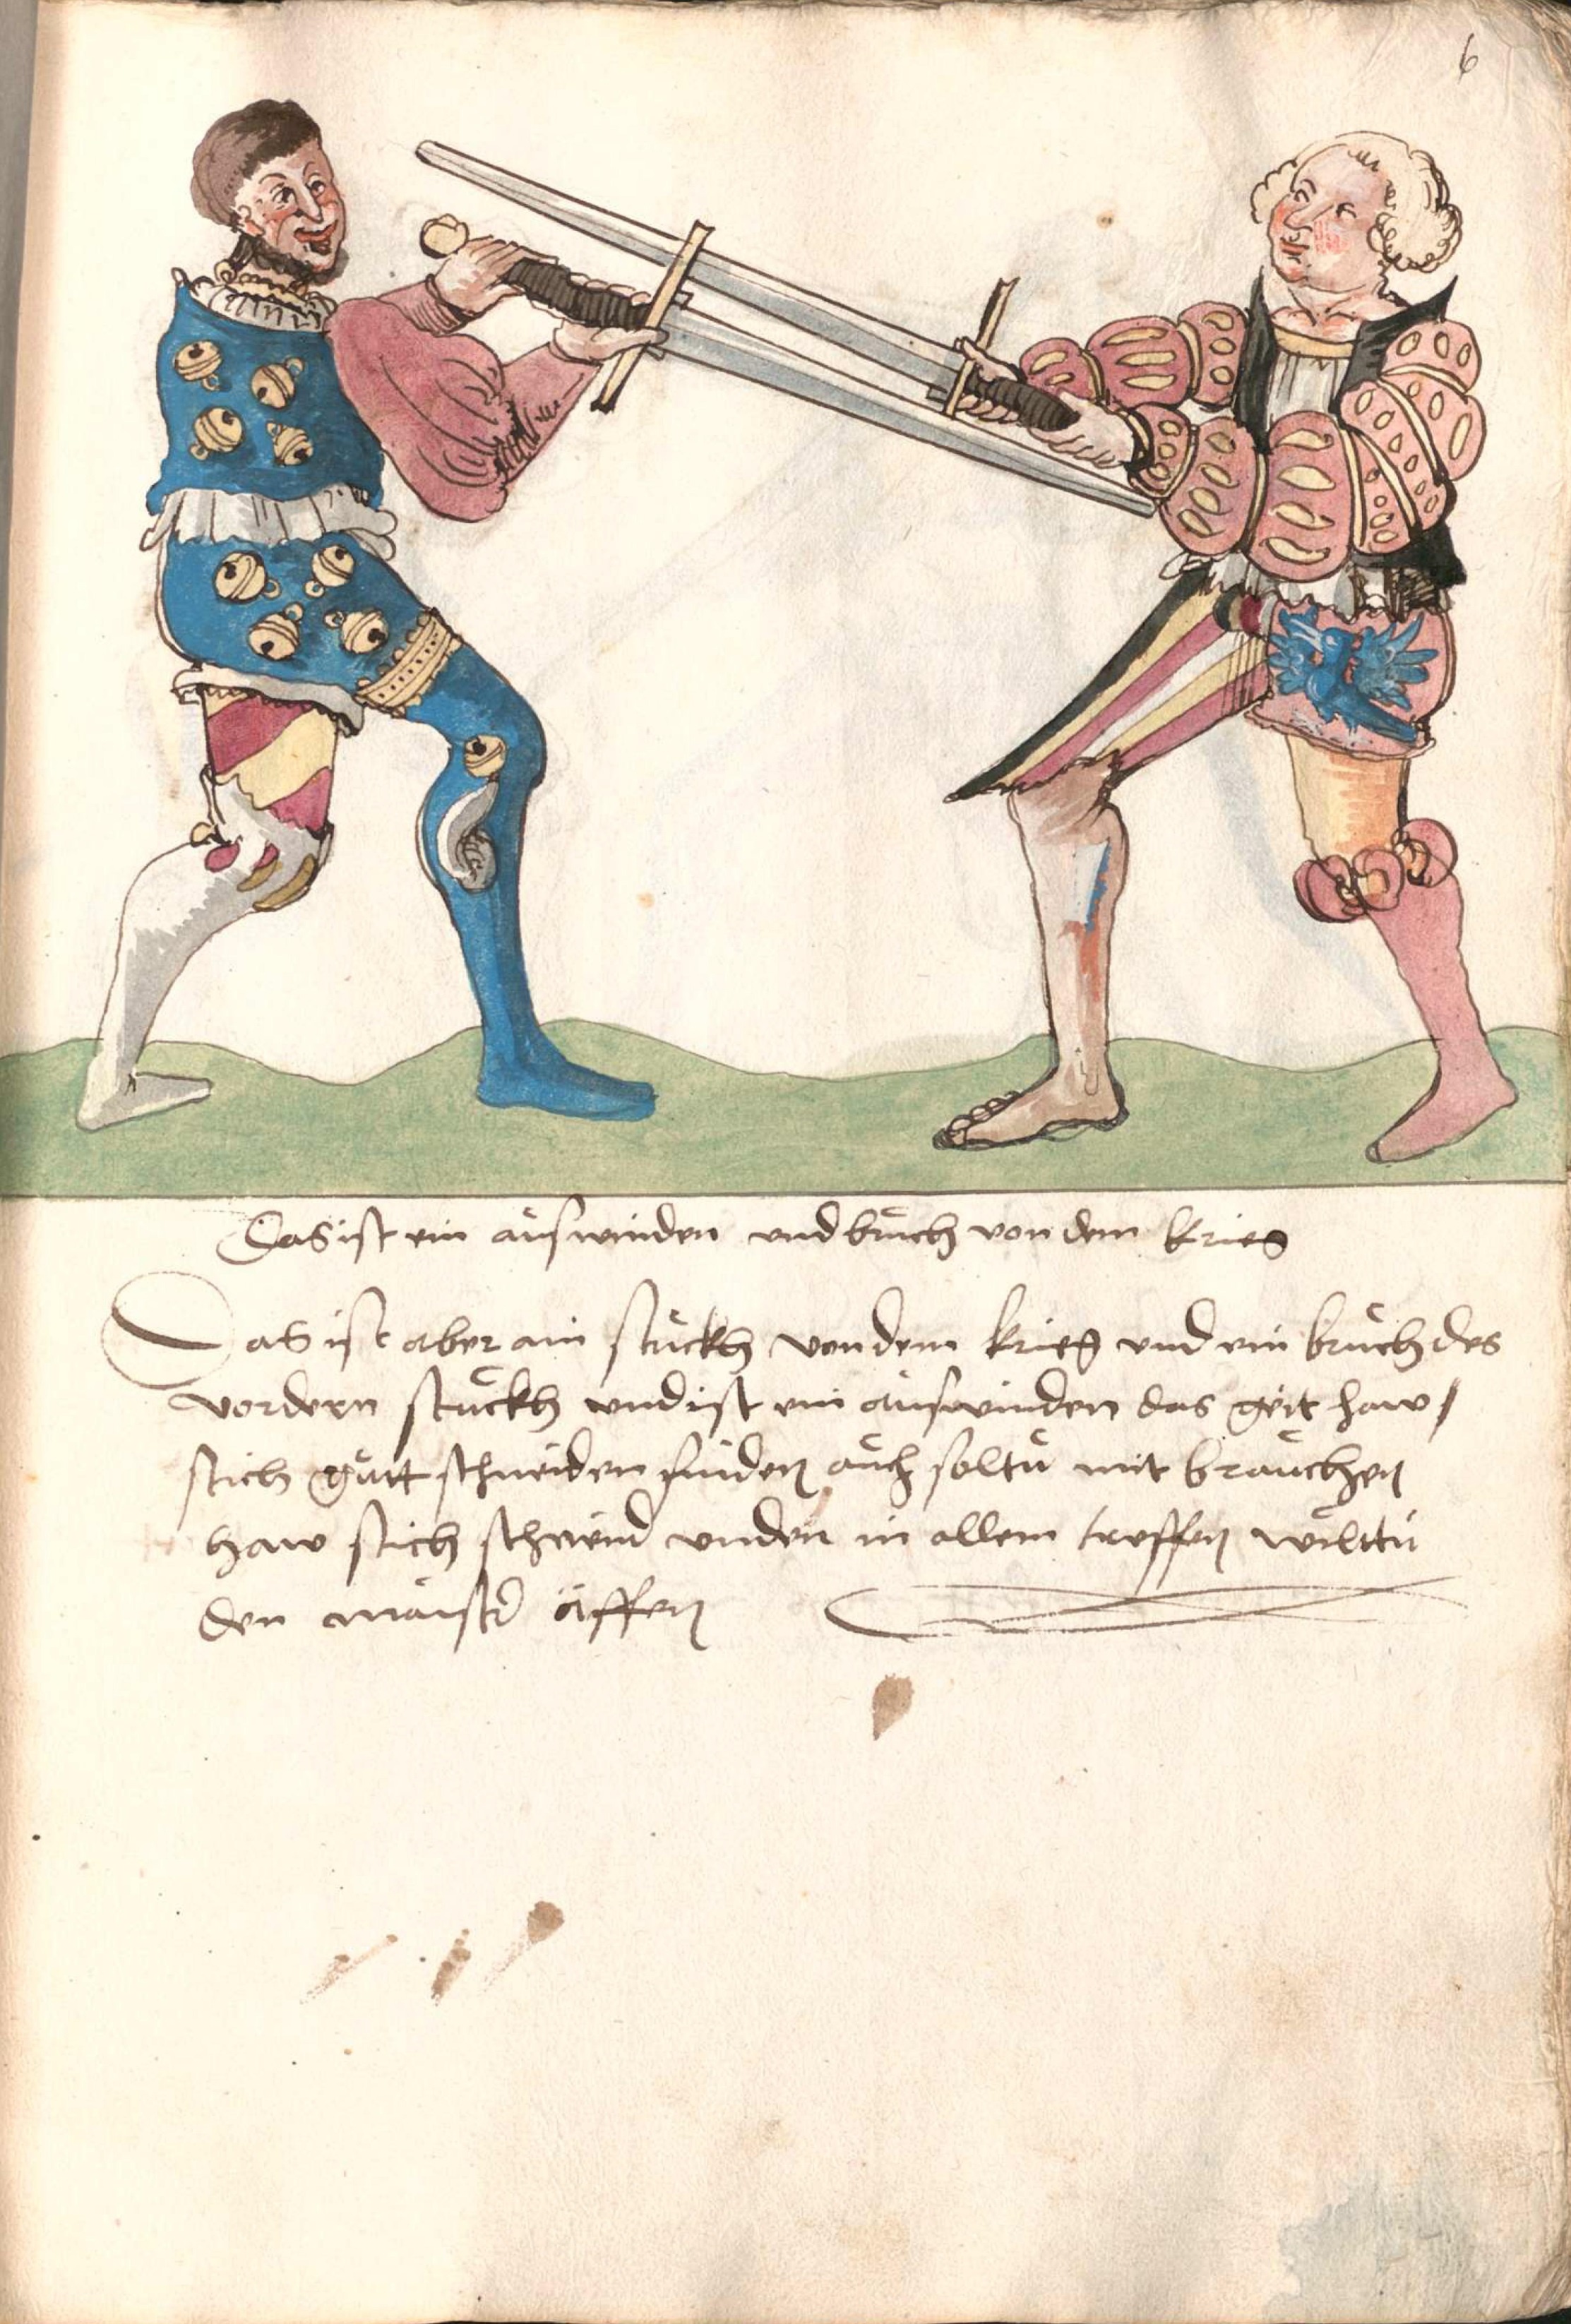 6
Das ist ein aůswinden vnd brůch von dem krieg
Das ist aber ain stůckh von dem krieg vnd ein brůch des
vordern stůckh vnd ist ein aůswinden das geit haw /
stich gůtt schneiden finden aůch soltů mit braůchen
haw stich schneid vnden in allem treffen wiltů
den maister äffen